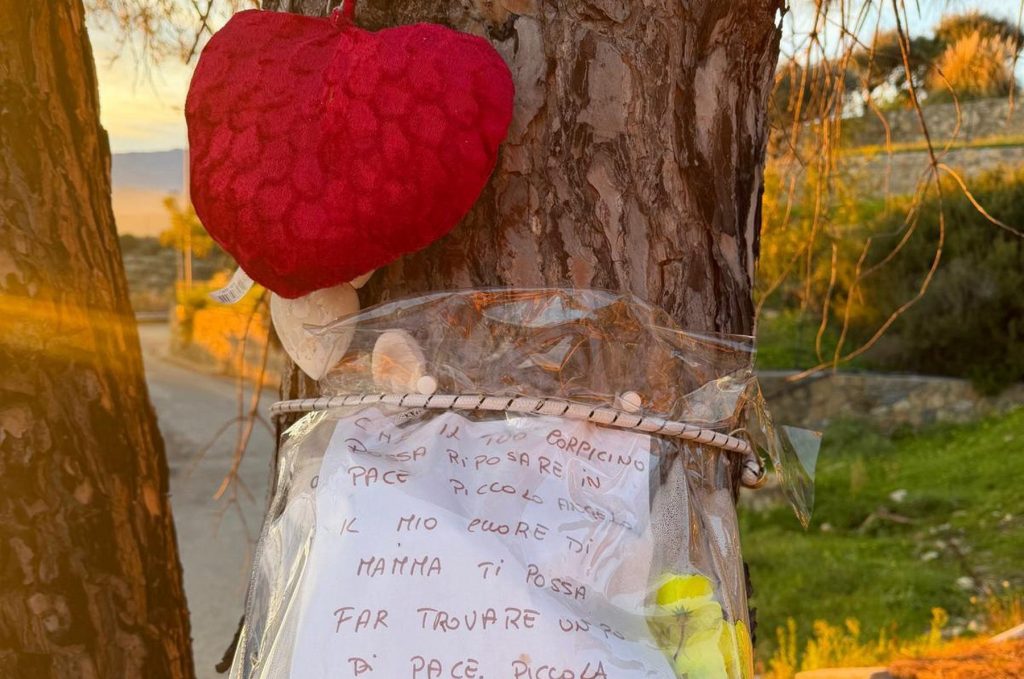 CHE IL TUO CORPICINO
POSSA RIPOSARE IN
PACE PICCOLO ANGELO
IL MIO CUORE DI
MAMMA TI POSSA
FAR TROVARE UN PO
DI PACE. PICCOLA